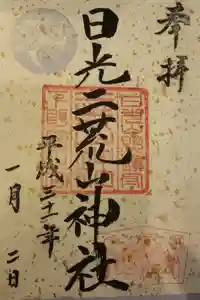 奉拝
日光二荒山神社
平成三十一年
一月
二日